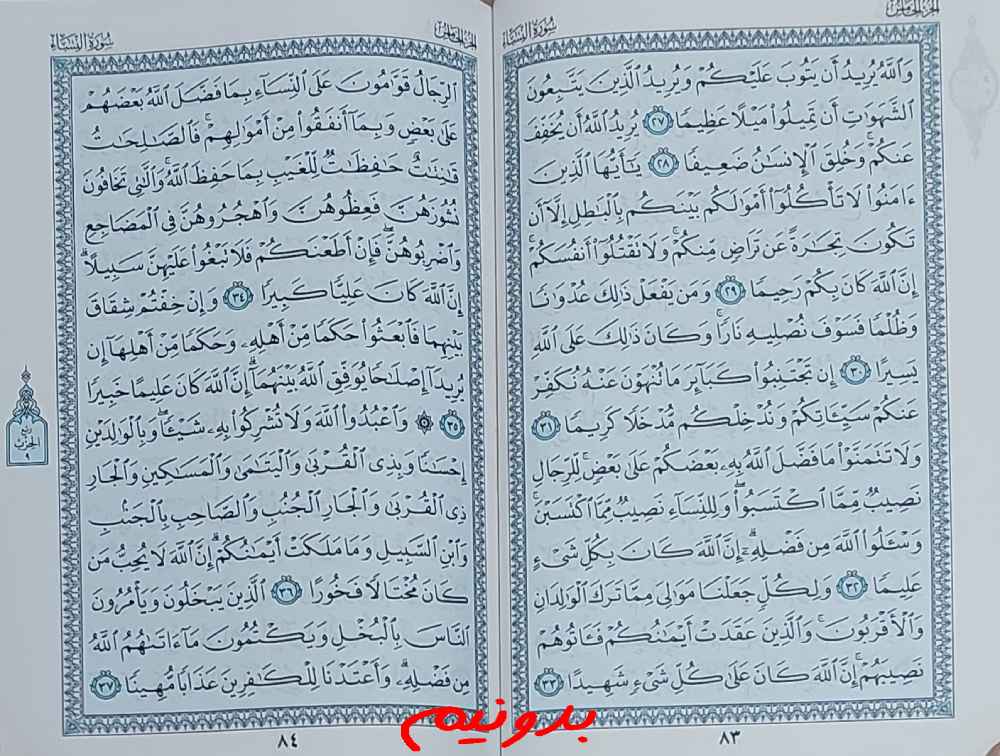 الجزء الخامس
سورة النساء
وَاللَّهُ يُرِيدُ أَن يَتُوبَ عَلَيْكُمْ وَيُرِيدُ الَّذِينَ يَتَّبِعُونَ
الشَّهَوَاتِ أَن تَمِيلُوا۟ مَيْلًا عَظِيمًا ٢٧ يُرِيدُ اللَّهُ أَن يُخَفِّفَ
عَنكُمْ ۚ وَخُلِقَ الْإِنسَانُ ضَعِيفًا ٢٨ يَا أَيُّهَا الَّذِينَ
ءَامَنُوا۟ لَا تَأْكُلُوٓا۟ أَمْوَالَكُم بَيْنَكُم بِالْبَاطِلِ إِلَّآ أَن
تَكُونَ تِجَارَةً عَن تَرَاضٍ مِّنكُمْ ۚ وَلَا تَقْتُلُوٓا۟ أَنفُسَكُمْ ۚ
إِنَّ اللَّهَ كَانَ بِكُمْ رَحِيمًا ٢٩ وَمَن يَفْعَلْ ذَٰلِكَ عُدْوَانًا
وَظُلْمًا فَسَوْفَ نُصْلِيهِ نَارًا ۚ وَكَانَ ذَٰلِكَ عَلَى اللَّهِ
يَسِيرًا ٣٠ إِن تَجْتَنِبُوا۟ كَبَآئِرَ مَا تُنْهَوْنَ عَنْهُ نُكَفِّرْ
عَنكُمْ سَيِّئَاتِكُمْ وَنُدْخِلْكُم مُّدْخَلًا كَرِيمًا ٣١
وَلَا تَتَمَنَّوْا۟ مَا فَضَّلَ اللَّهُ بِهِۦ بَعْضَكُمْ عَلَىٰ بَعْضٍ ۚ لِّلرِّجَالِ
نَصِيبٌ مِّمَّا اكْتَسَبُوا۟ ۖ وَلِلنِّسَآءِ نَصِيبٌ مِّمَّا اكْتَسَبْنَ ۚ
وَسْـَٔلُوا۟ اللَّهَ مِن فَضْلِهِۦٓ ۗ إِنَّ اللَّهَ كَانَ بِكُلِّ شَىْءٍ
عَلِيمًا ٣٢ وَلِكُلٍّ جَعَلْنَا مَوَالِىَ مِمَّا تَرَكَ الْوَالِدَانِ
وَالْأَقْرَبُونَ ۚ وَالَّذِينَ عَقَدَتْ أَيْمَانُكُمْ فَـَٔاتُوهُمْ
نَصِيبَهُمْ ۚ إِنَّ اللَّهَ كَانَ عَلَىٰ كُلِّ شَىْءٍ شَهِيدًا ٣٣
٨٣
الجزء الخامس
سورة النساء
الرِّجَالُ قَوَّامُونَ عَلَى النِّسَآءِ بِمَا فَضَّلَ اللَّهُ بَعْضَهُمْ
عَلَىٰ بَعْضٍ وَبِمَآ أَنفَقُوا۟ مِنْ أَمْوَالِهِمْ ۚ فَالصَّالِحَاتُ
قَانِتَاتٌ حَافِظَاتٌ لِّلْغَيْبِ بِمَا حَفِظَ اللَّهُ ۚ وَالَّاتِى تَخَافُونَ
نُشُوزَهُنَّ فَعِظُوهُنَّ وَاهْجُرُوهُنَّ فِى الْمَضَاجِعِ
وَاضْرِبُوهُنَّ ۖ فَإِنْ أَطَعْنَكُمْ فَلَا تَبْغُوا۟ عَلَيْهِنَّ سَبِيلًا ۗ
إِنَّ اللَّهَ كَانَ عَلِيًّا كَبِيرًا ٣٤ وَإِنْ خِفْتُمْ شِقَاقَ
بَيْنِهِمَا فَابْعَثُوا۟ حَكَمًا مِّنْ أَهْلِهِۦ وَحَكَمًا مِّنْ أَهْلِهَآ إِن
يُرِيدَآ إِصْلَاحًا يُوَفِّقِ اللَّهُ بَيْنَهُمَآ ۗ إِنَّ اللَّهَ كَانَ عَلِيمًا خَبِيرًا
٣٥ ۞ وَاعْبُدُوا۟ اللَّهَ وَلَا تُشْرِكُوا۟ بِهِۦ شَيْـًٔا ۖ وَبِالْوَالِدَيْنِ
إِحْسَانًا وَبِذِى الْقُرْبَىٰ وَالْيَتَامَىٰ وَالْمَسَاكِينِ وَالْجَارِ
ذِى الْقُرْبَىٰ وَالْجَارِ الْجُنُبِ وَالصَّاحِبِ بِالْجَنۢبِ
وَابْنِ السَّبِيلِ وَمَا مَلَكَتْ أَيْمَانُكُمْ ۗ إِنَّ اللَّهَ لَا يُحِبُّ مَن
كَانَ مُخْتَالًا فَخُورًا ٣٦ الَّذِينَ يَبْخَلُونَ وَيَأْمُرُونَ
النَّاسَ بِالْبُخْلِ وَيَكْتُمُونَ مَآ ءَاتَاهُمُ اللَّهُ
مِن فَضْلِهِۦ ۗ وَأَعْتَدْنَا لِلْكَافِرِينَ عَذَابًا مُّهِينًا ٣٧
٨٤
الحزب
٩
بدونیم